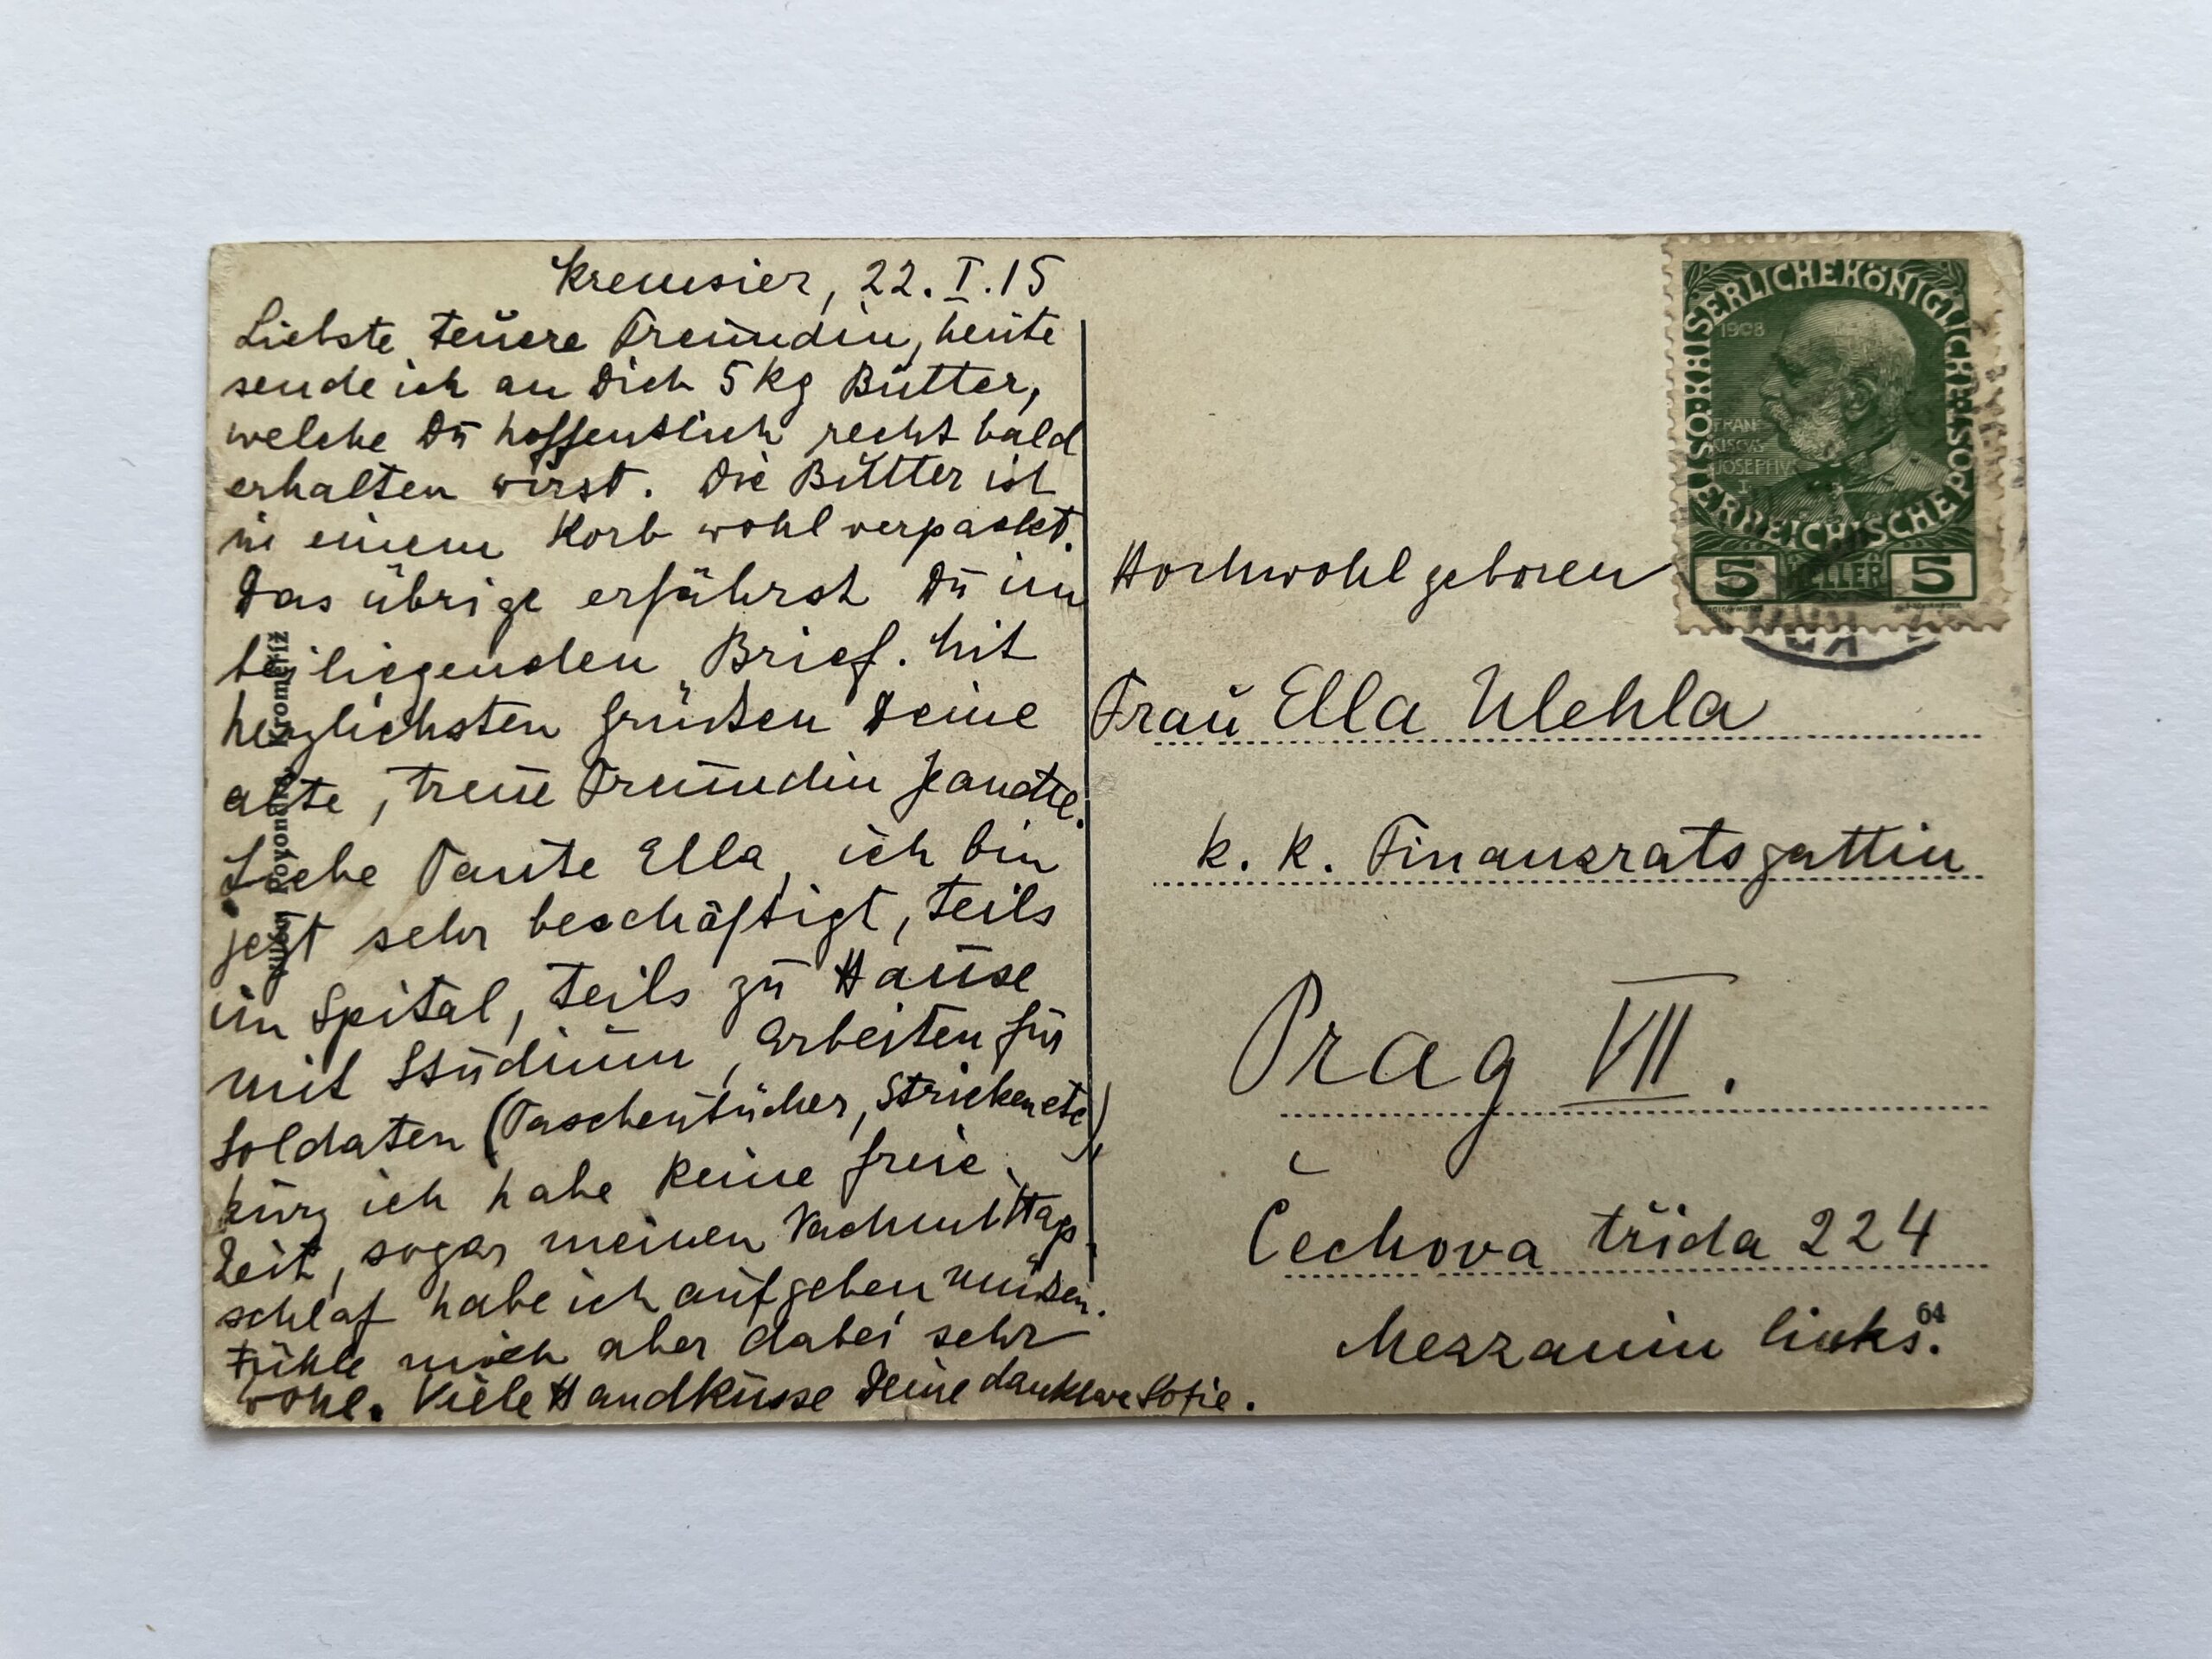 Kremsier, 22. I. 15
Liebste teuere Freundin, heute
sende ich an Dich 5 kg Butter,
welche Du hoffentlich recht bald
erhalten wirst. Die Butter ist
in einem Korb wohl verpackt.
Das übrige erfährst Du im
beiliegenden Brief. Mit
herzlichsten Grüßen Deine
alte, treue Freundin
Liebe Tante Ella, ich bin
jetzt sehr beschäftigt, teils
im Spital, teils zu Hause
mit Studium, Arbeiten für
Soldaten (Taschentücher, Stricken etc)
kurz ich habe keine freie
Zeit, sogar meinen Nachmittag
schlaf habe ich aufgeben müßen.
Fühle mich aber dabei sehr
wohl. Viele Handküsse Deine dankbare Sofie.
Kroměříž
Hochwohlgeboren
Frau Ella Ulehla
k. k. Finanzratsgattin
Prag VII.
Čechova třida 224
Mezzanin links.
64
KAISERLICHE KÖNIGLICHE ÖSTERREICHISCHE POST
1908
FRAN
CISCVS
IOSEPHV
I
5 HELLER 5